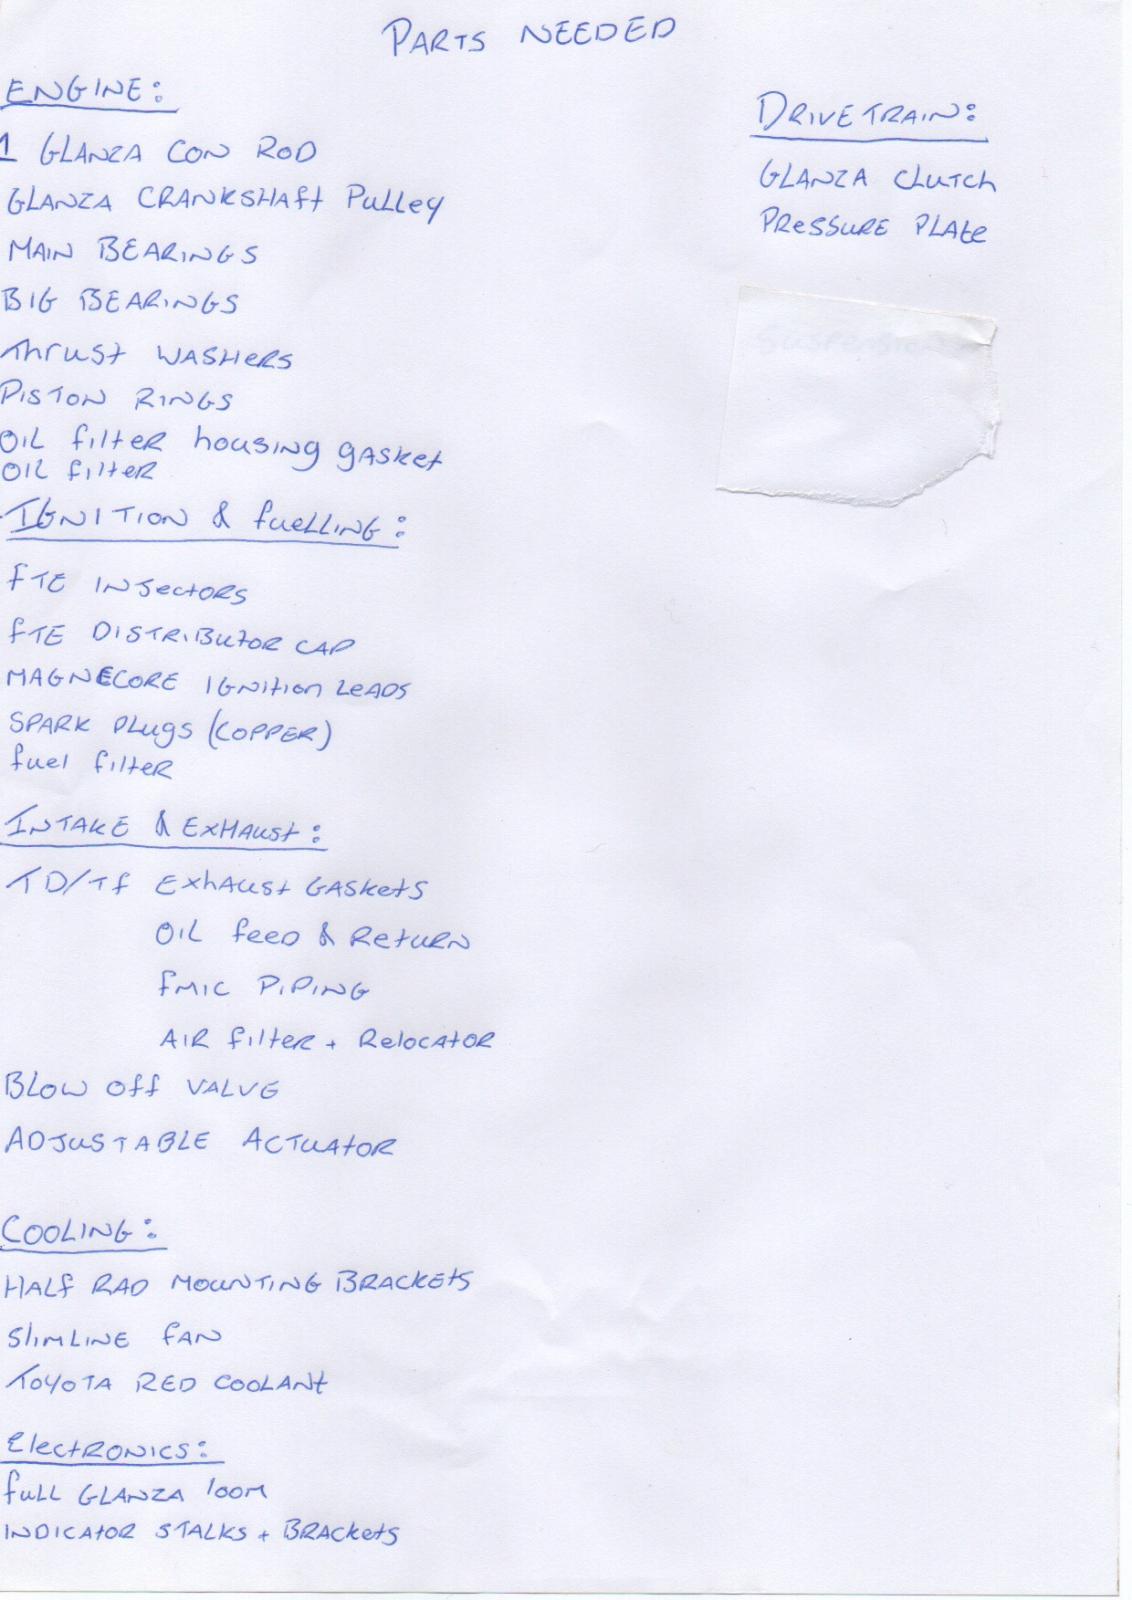 PARTS NEEDED
ENGINE:
1 GLANZA CON ROD
GLANZA CRANKSHAft Pulley
MAIN BEARINGS
BIG BEARINGS
Thrust WASHERS
PISTON RINGS
OIL filtER housing gasket
OIL filtER
IGNITION & fuelLING:
fTE INJectORS
fTE DISTRIButOR CAP
MAGNECORE IGNition LeADS
SPARK Plugs (COPPER)
fuel filtER
INTAKE & ExHAust:
TD/Tf ExhAust GASkets
OIL feed & RetuRN
fMIC PIPING
AIR filtER + RelocatOR
BLOW Off VALVE
ADJUSTABLE ACTuatOR
COOLING:
HALf RAD MOuNTING BRACkets
SlIMLINE fAN
TOYOTA RED COOLANt
ElectRONICS:
fuLL GLANZA loom
INDICAtOR STALKS + BRAckets
DRIVETRAIN:
GLANZA Clutch
PReSSURE PLAte
Suspension